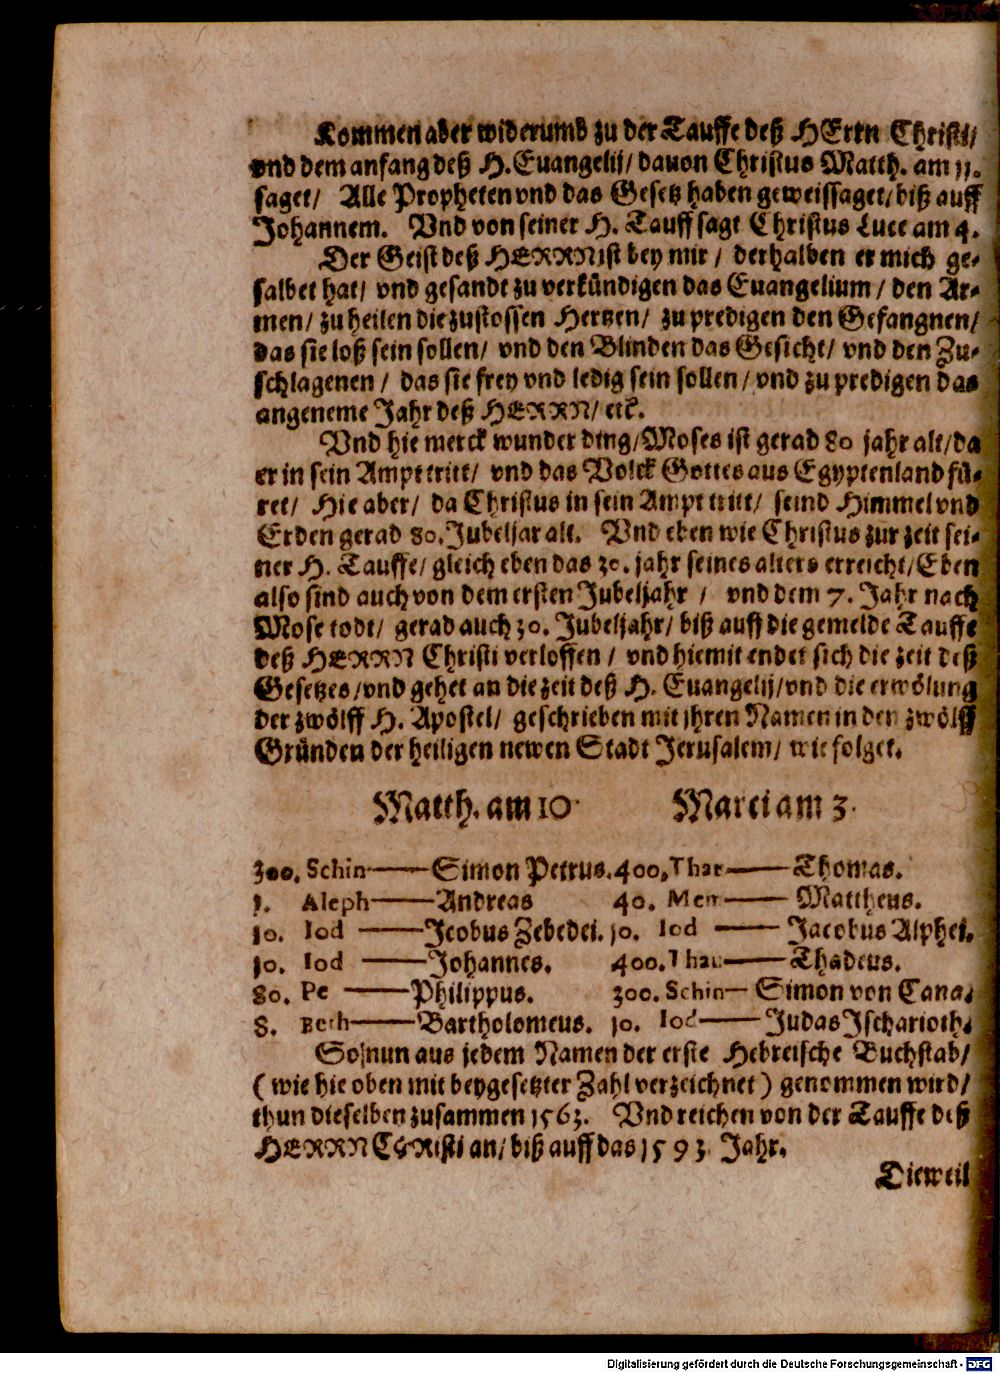 Kommen aber widerumb zu der Tauffe deß HErrn Christi/
vnd dem anfang deß H. Euangelij/ dauon Christus Matth. am 11.
saget/ Alle Propheten vnd das Gesetz haben geweissaget/ biß auff
Johannem. Vnd von seiner H. Tauff sagt Christus Luce am 4.
Der Geist deß HERRN ist bey mir / derhalben er mich ge-
salbet hat/ vnd gesandt zu verkündigen das Euangelium / den Ar-
men/ zu heilen die zustossen Hertzen/ zu predigen den Gefangnen/
das sie loß sein sollen/ vnd den Blinden das Gesicht/ vnd den Zu-
schlagenen / das sie frey vnd ledig sein sollen/ vnd zu predigen das
angeneme Jahr deß HERRN/ etc.
Vnd hie merck wunder ding/ Moses ist gerad 80 jahr alt/ da
er in sein Ampt tritt/ vnd das Volck Gottes aus Egyptenland fü-
ret/ Hie aber/ da Christus in sein Ampt tritt/ seind Himmel vnd
Erden gerad 80. Jubeljar alt. Vnd eben wie Christus zur zeit sei-
ner H. Tauffe/ gleich eben das 30. jahr seines alters erreicht/ Eben
also sind auch von dem ersten Jubeljahr / vnd dem 7. Jahr nach
Mose todt/ gerad auch 30. Jubeljahr/ biß auff die gemelde Tauffe
deß HERRN Christi verloffen / vnd hiemit endet sich die zeit deß
Gesetzes/ vnd gehet an die zeit deß H. Euangelij/ vnd die erwölung
der zwölff H. Apostel/ geschrieben mit jhren Namen in den zwölff
Gründen der heiligen newen Stadt Jerusalem/ wie folget.
Matth. am 10. Marci am 3.
300. Schin — Simon Petrus. 400. Thar — Thomas.
1. Aleph — Andreas 40. Mem — Mattheus.
10. Iod — Jcobus Zebedei. 10. Iod — Jacobus Alphei.
10. Iod — Johannes. 400. Thau — Thadeus.
80. Pe — Philippus. 300. Schin — Simon von Cana.
8. Beth — Bartholomeus. 10. Iod — Judas Jscharioth.
So nun aus jedem Namen der erste Hebreische Buchstab/
( wie hie oben mit beygesetzter Zahl verzeichnet ) genommen wird/
thun dieselben zusammen 1563. Vnd reichen von der Tauffe deß
HERRN CHRisti an/ biß auff das 1593. Jahr.
Dieweil
Digitalisierung gefördert durch die Deutsche Forschungsgemeinschaft - DFG